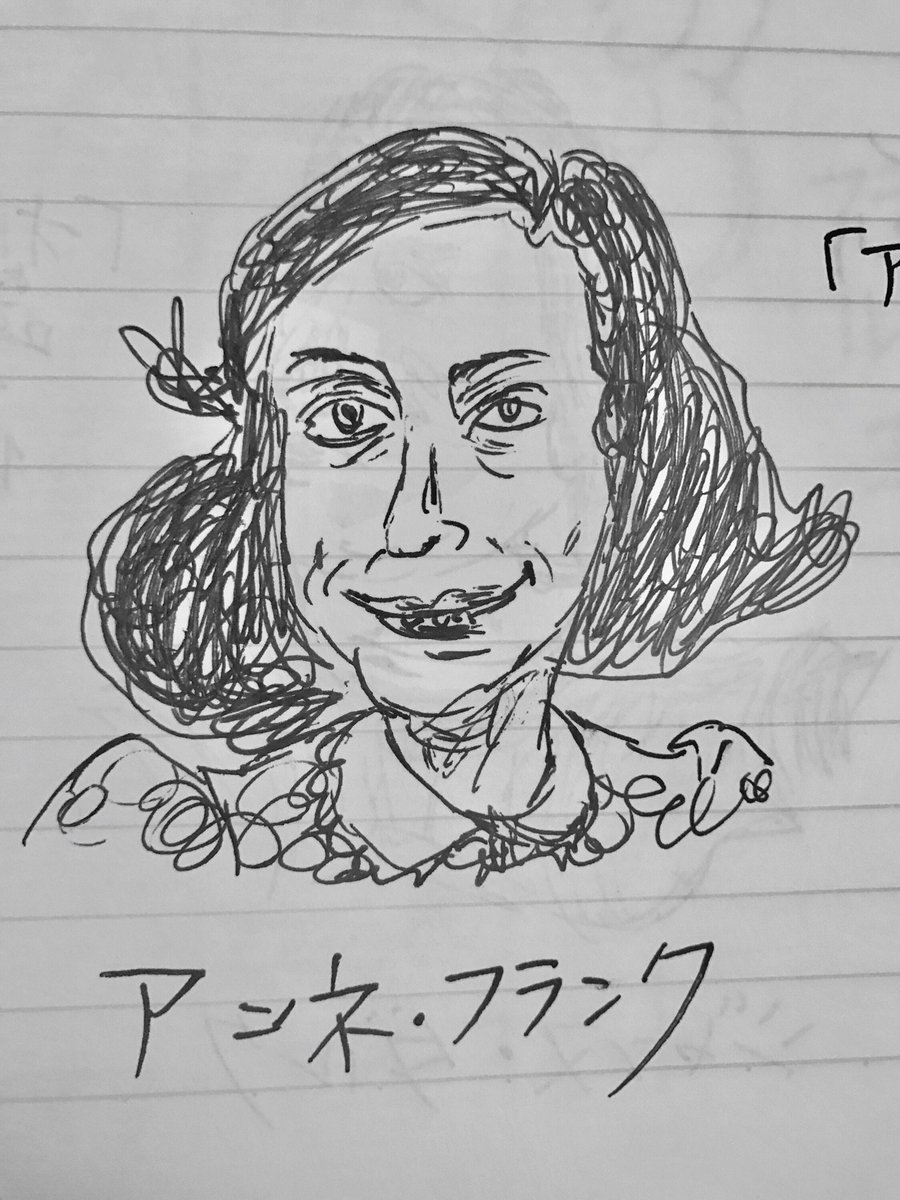 「ア
アンネ・フランク